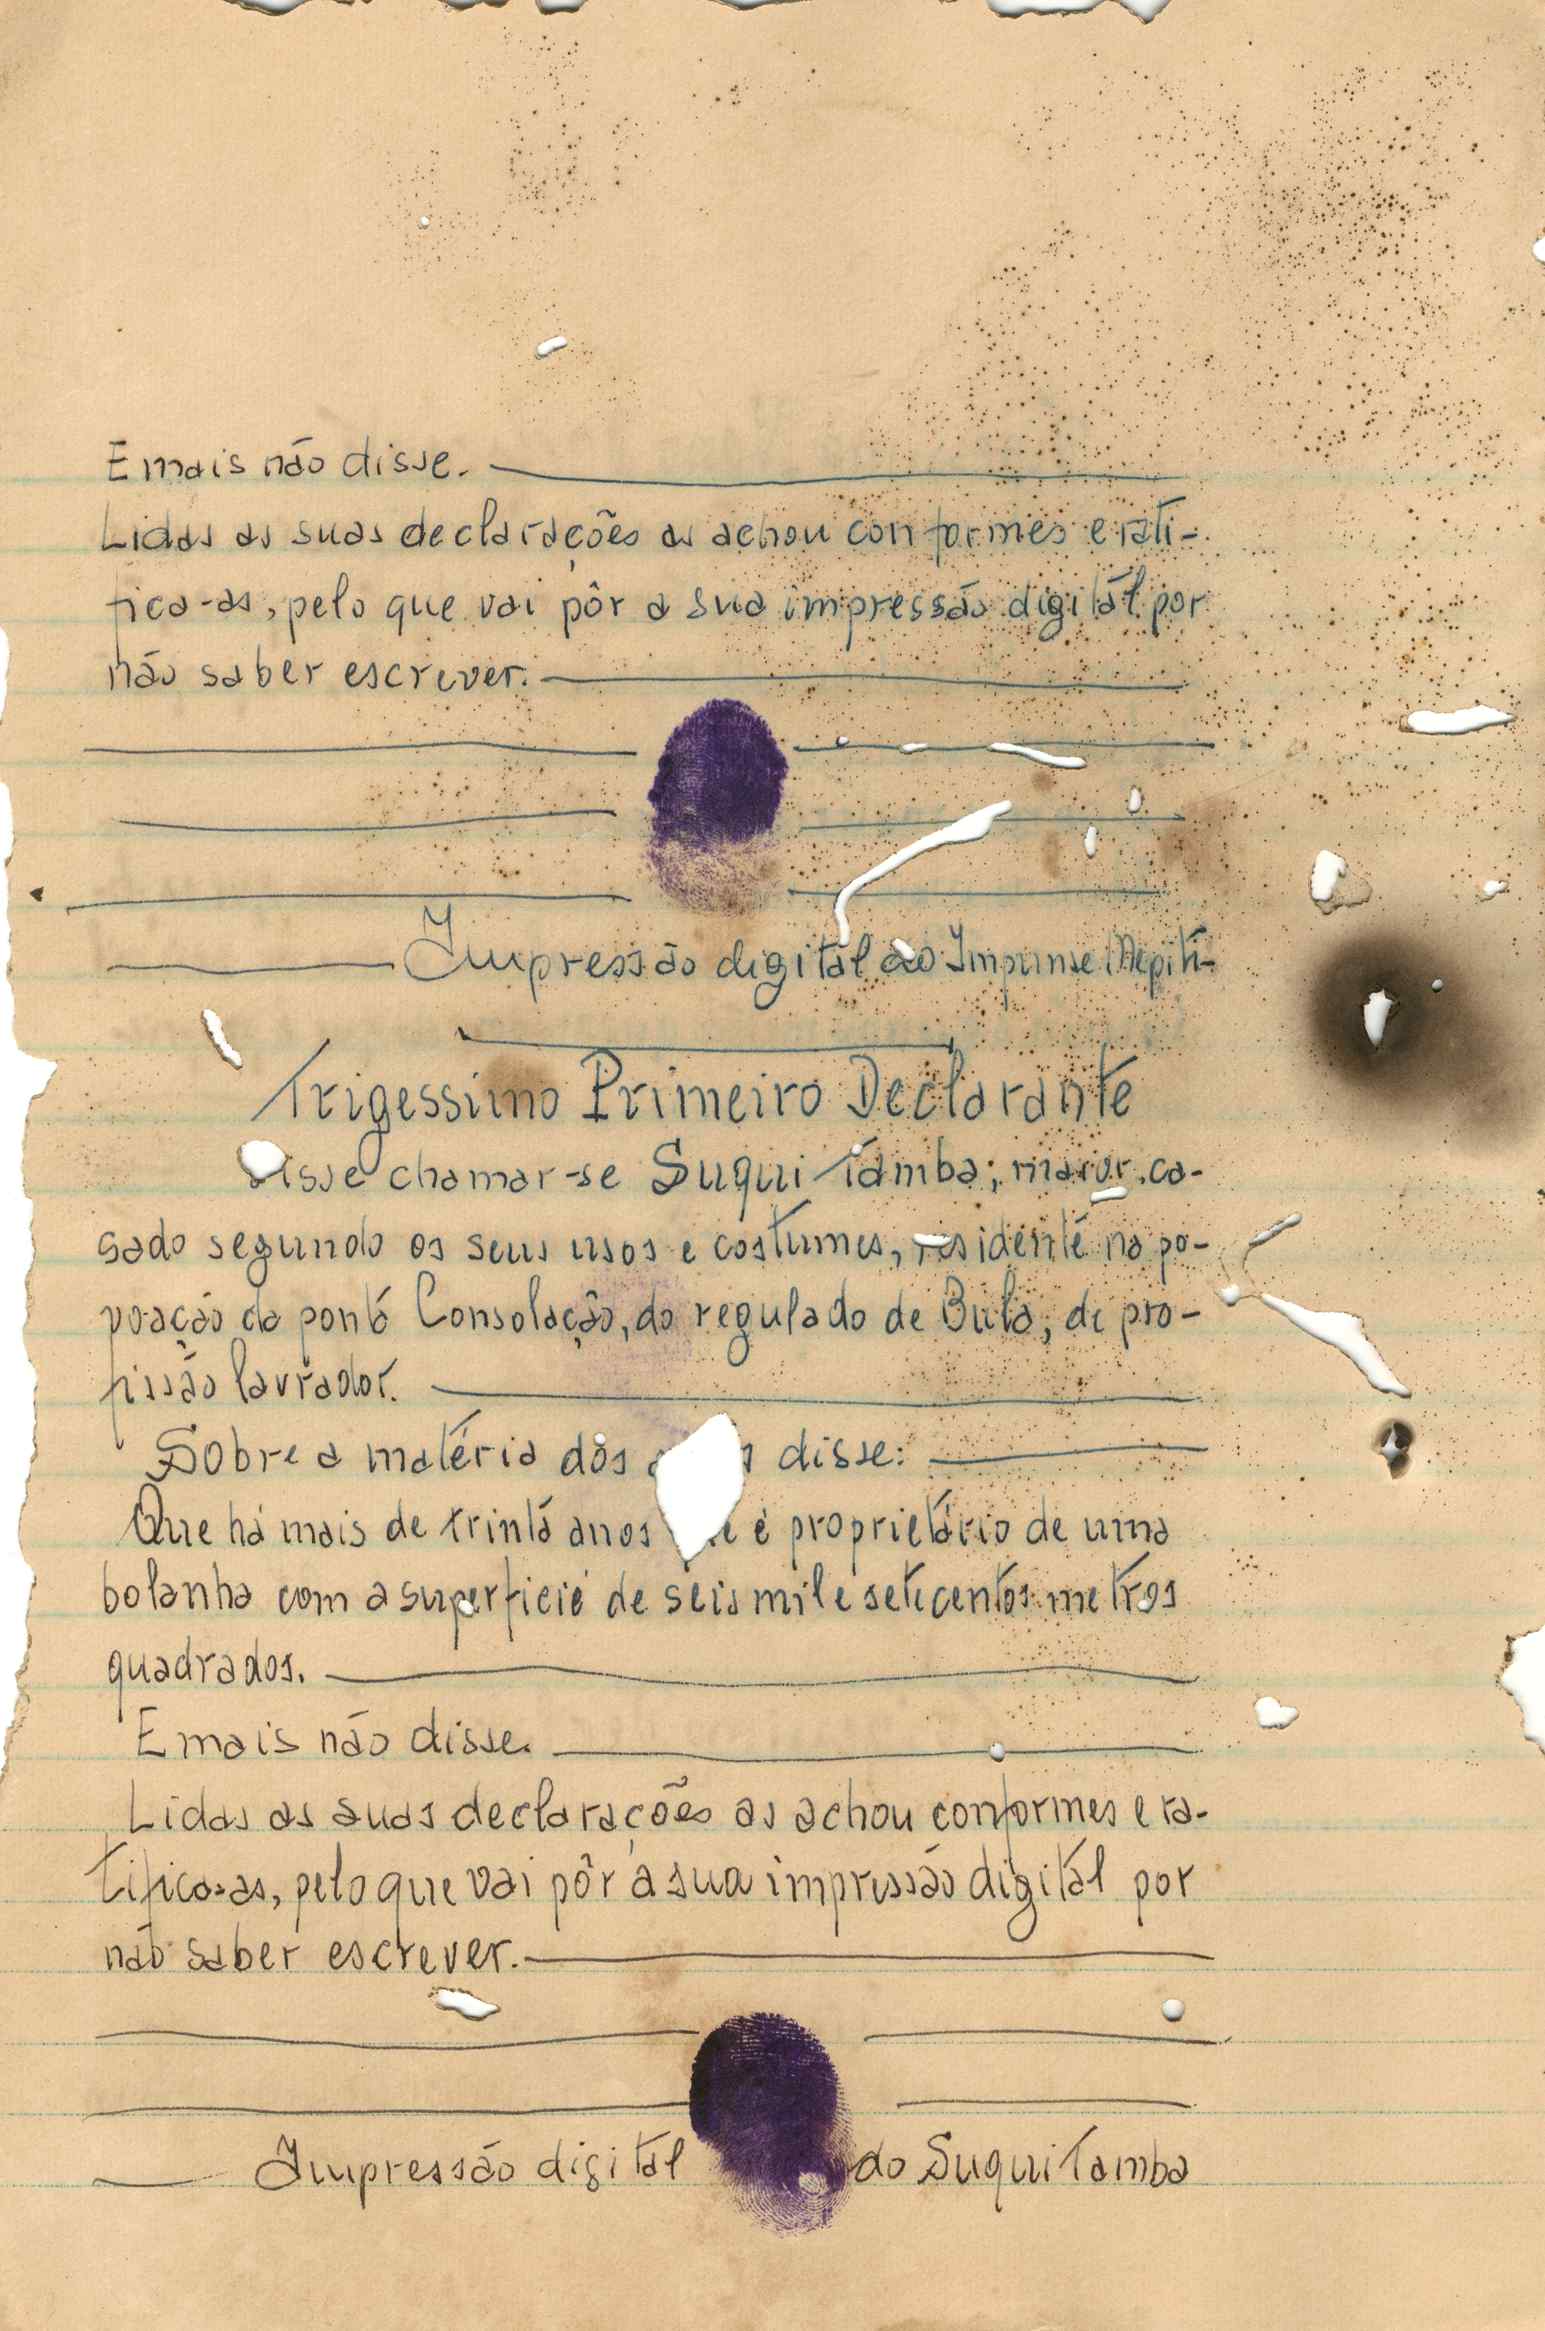 E mais não disse.
Lidas as suas declarações as achou conformes e rati-
fica-as, pelo que vai pôr a sua impressão digital por
não saber escrever.
Impressão digital do
Trigessimo Primeiro Declarante
Disse chamar-se Suqui Tamba; maior, ca-
sado segundo os seus usos e costumes, residente na po-
voação da ponta Consolação, do regulado de Bula, de pro-
fissão lavrador.
Sobre a matéria dos disse:
Que há mais de trinta anos é proprietário de uma
bolanha com a superficie de seis mil e seticentos metros
quadrados.
E mais não disse.
Lidas as suas declarações as achou conformes e ra-
tifica-as, pelo que vai pôr a sua impressão digital por
não saber escrever.
Impressão digital do Suqui Tamba